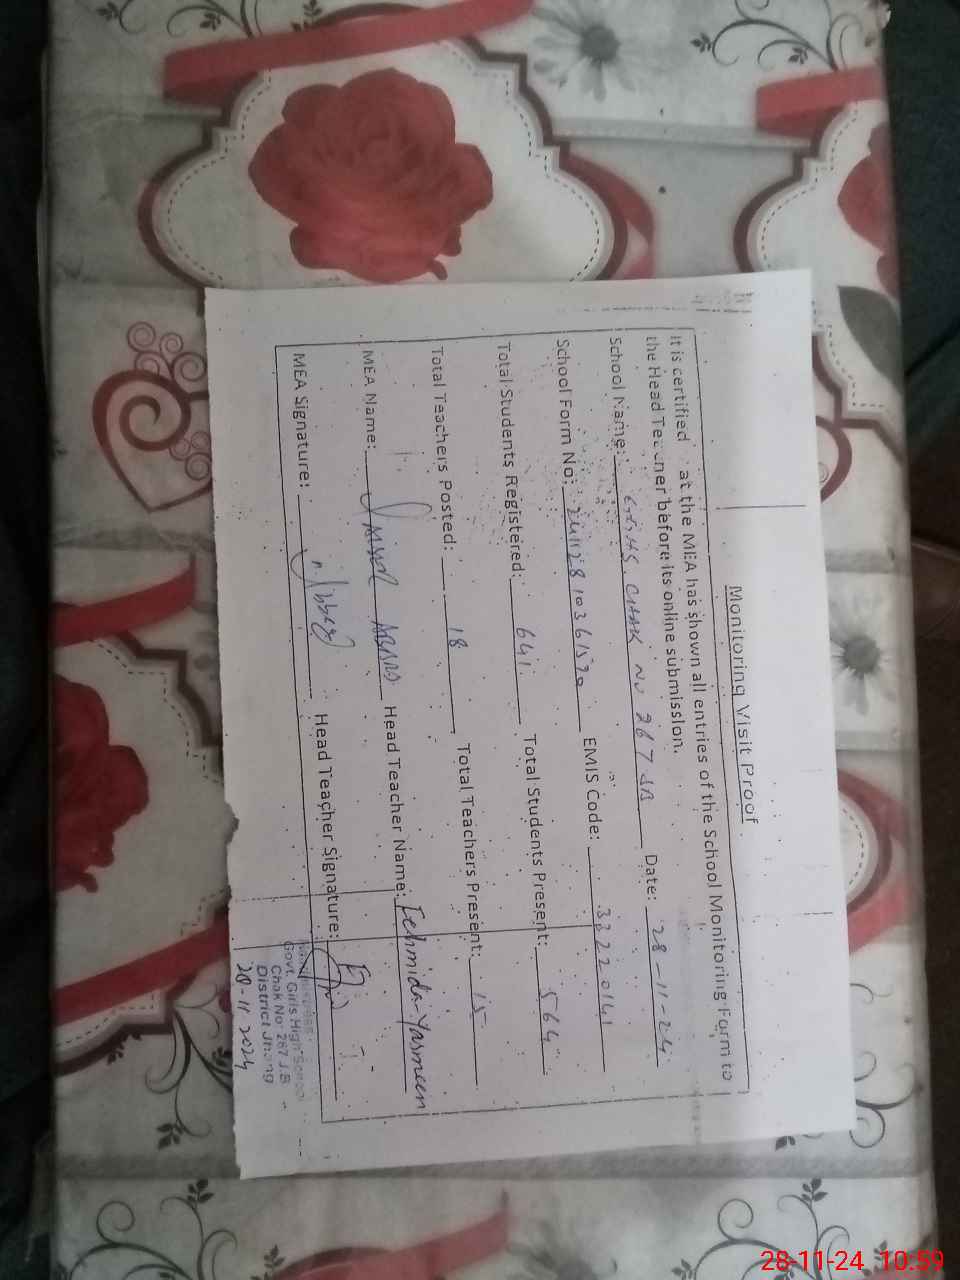 Monitoring Visit Proof
It is certified at the MEA has shown all entries of the School Monitoring Form to
the Head Te ner before its online submission.
School Name: GGHS CHAK NO 267 JB Date: 28-11-24
School Form No: EMIS Code: 33220141
Total Students Registered: 641 Total Students Present: 564
Total Teachers Posted: 18 Total Teachers Present: 15
MEA Name: Head Teacher Name: Fehmida Yasmeen
MEA Signature: Head Teacher Signature:
Govt. Girls High School
Chak No. 267 J.B
District Jhang
28-11-2024
28-11-24 10:59